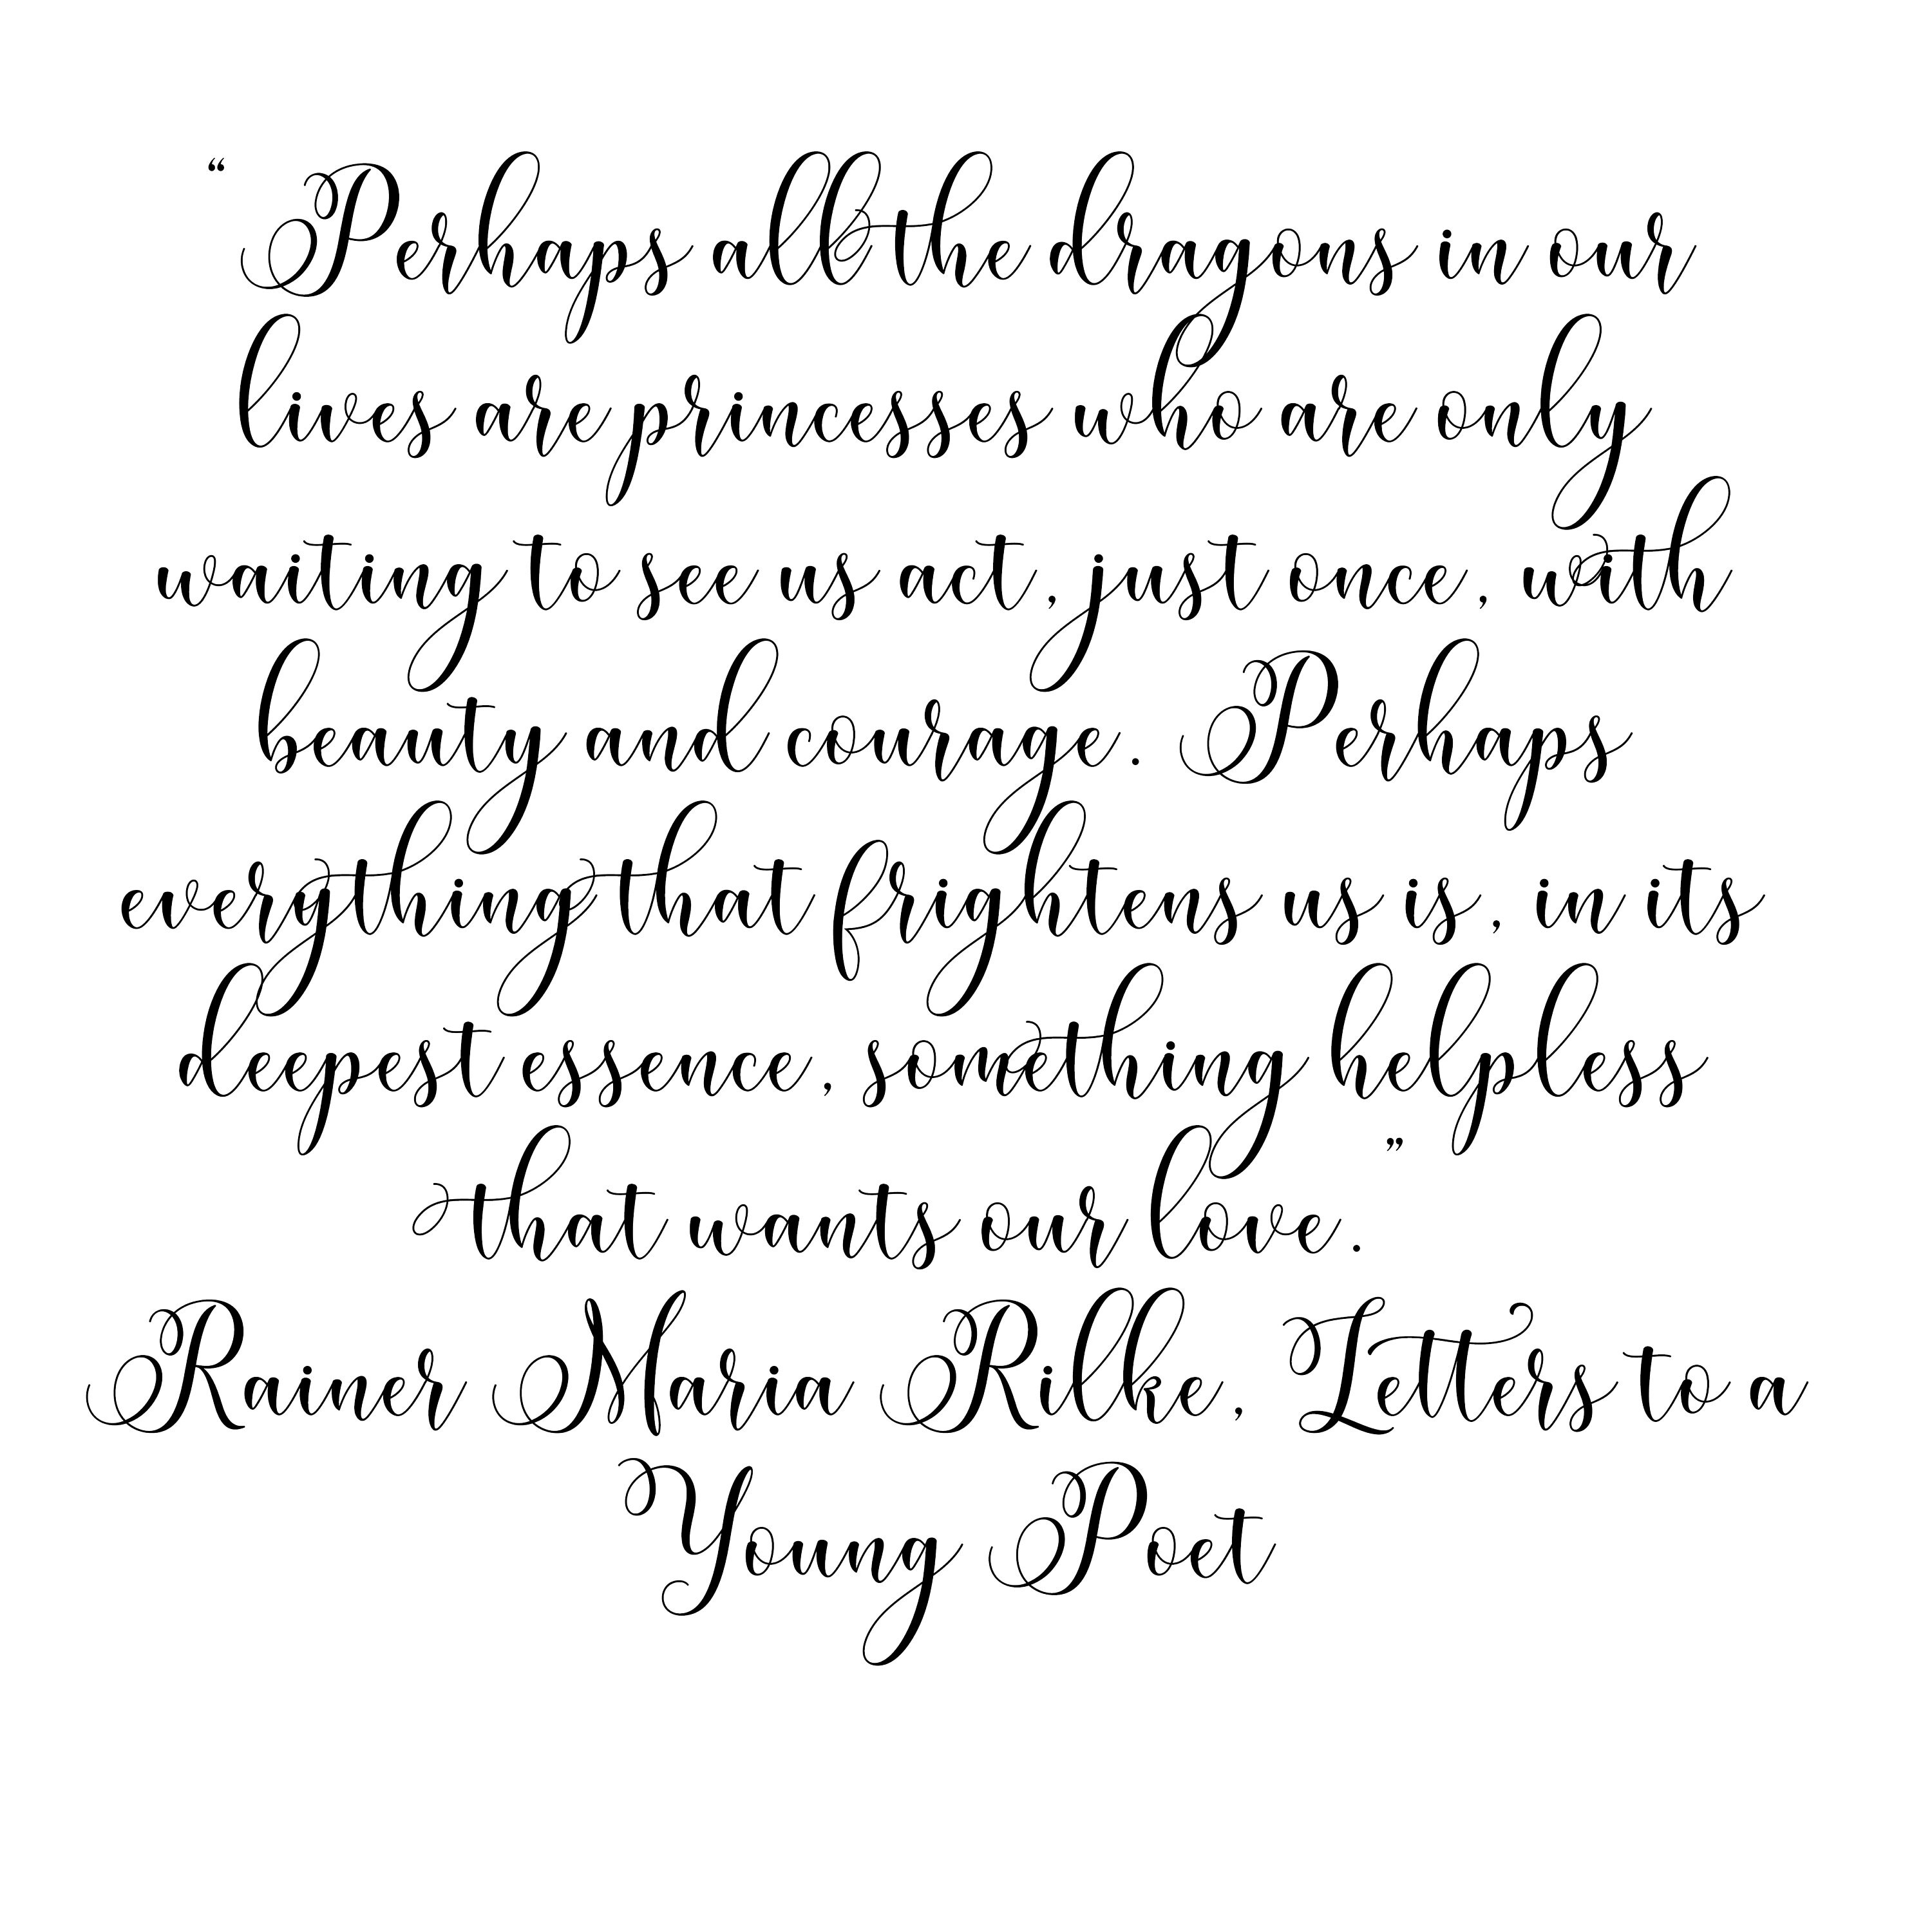 “Perhaps all the dragons in our
lives are princesses who are only
waiting to see us act, just once, with
beauty and courage. Perhaps
everything that frightens us is, in its
deepest essence, something helpless
that wants our love.”
Rainer Maria Rilke, Letters to a
Young Poet